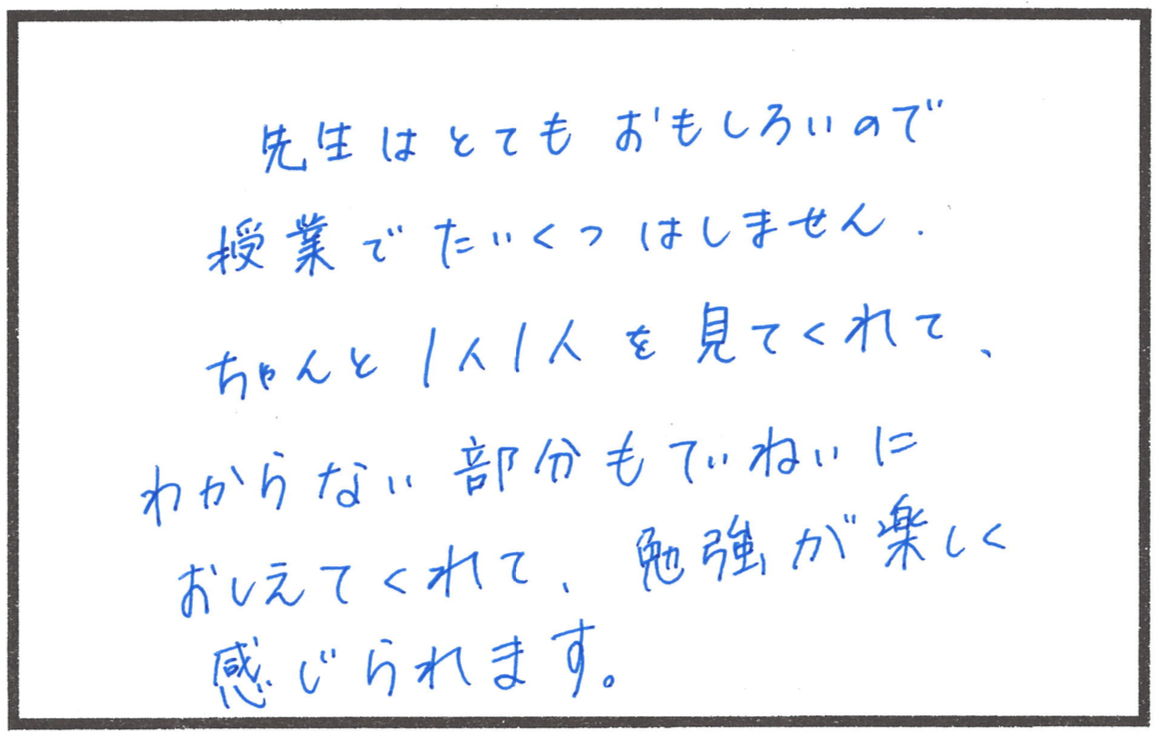 先生はとてもおもしろいので
授業でたいくつはしません.
ちゃんと1人1人を見てくれて、
わからない部分もていねいに
おしえてくれて、勉強が楽しく
感じられます。